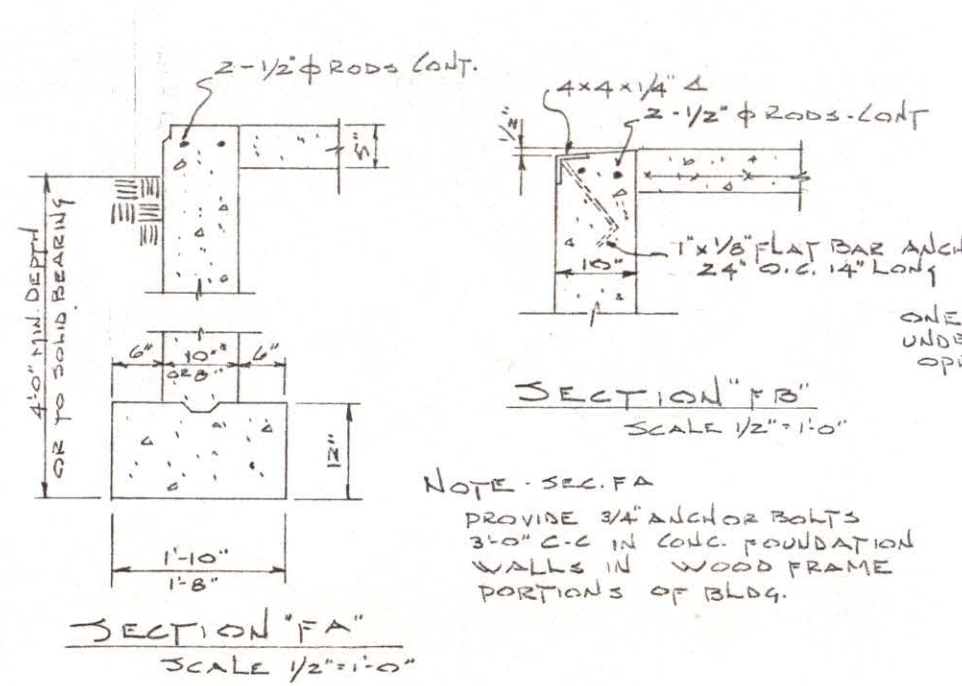 2-1/2" ϕ RODS CONT.
5"
4'-0" MIN. DEPTH
OR TO SOLID BEARING
6"
10"
OR 8"
6"
12"
1'-10"
1'-8"
SECTION "FA"
SCALE 1/2"=1'-0"
4x4x1/4" ∠
2-1/2" ϕ RODS-CONT
1/2"
10"
1"x1/8" FLAT BAR ANCH
24" O.C. 14" LONG
ONE
UNDE
OP
SECTION "FB"
SCALE 1/2"=1'-0"
NOTE - SEC. FA
PROVIDE 3/4" ANCHOR BOLTS
3'-0" C-C IN CONC. FOUNDATION
WALLS IN WOOD FRAME
PORTIONS OF BLDG.